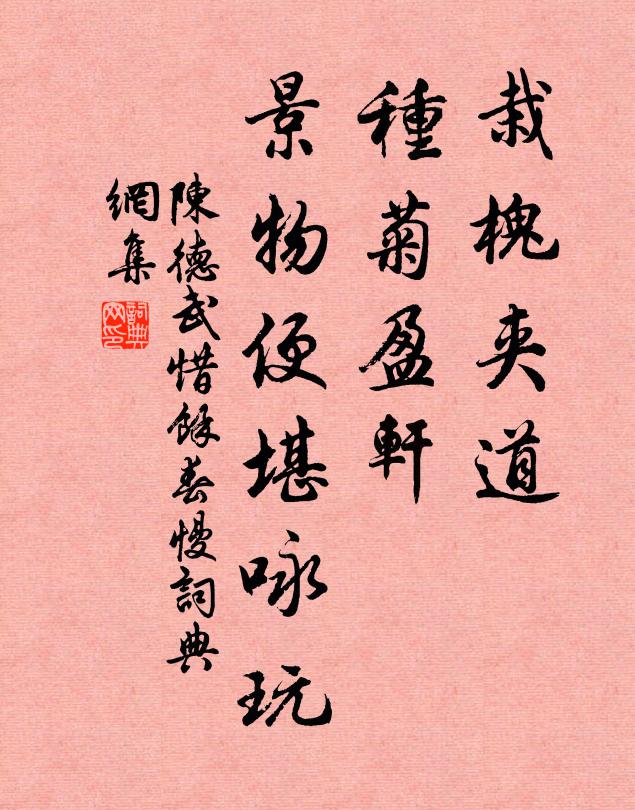 栽槐夾道
種菊盈軒
景物便堪咏玩
陳德武惜餘春慢詞典
網集
詞典
网印